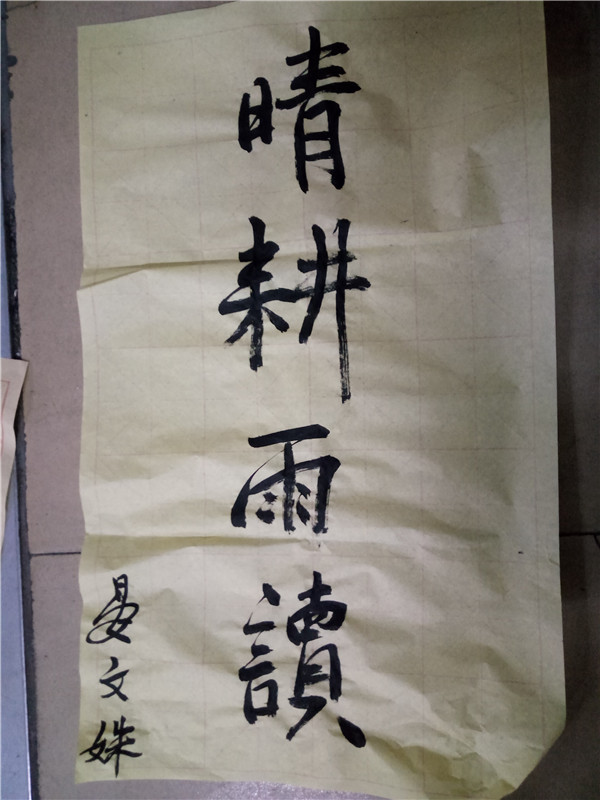 晴耕雨讀
晏文姝